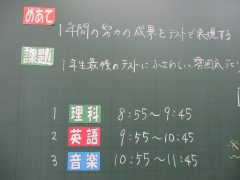 めあて
1年間の努力の成果をテストで表現する
課題
1年生最後のテストにふさわしい雰囲気
1 理科 8:55〜9:45
2 英語 9:55〜10:45
3 音楽 10:55〜11:45